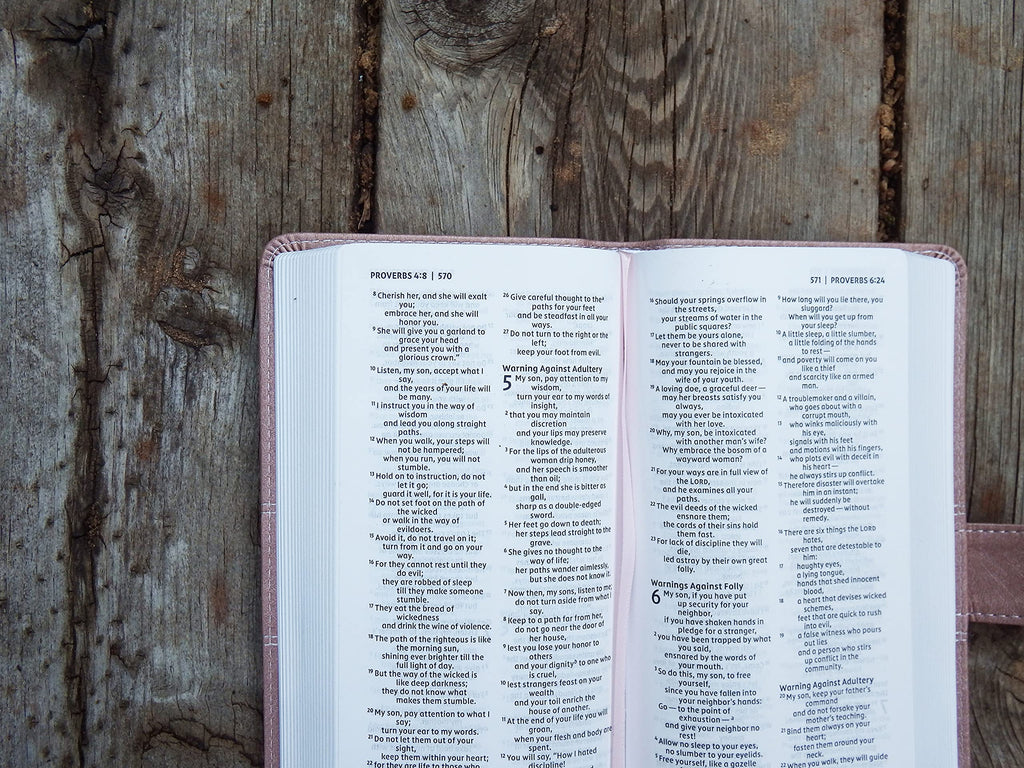 PROVERBS 4:8 | 570
8 Cherish her, and she will exalt
you;
embrace her, and she will
honor you.
9 She will give you a garland to
grace your head
and present you with a
glorious crown."
10 Listen, my son, accept what I
say,
and the years of your life will
be many.
11 I instruct you in the way of
wisdom
and lead you along straight
paths.
12 When you walk, your steps will
not be hampered;
when you run, you will not
stumble.
13 Hold on to instruction, do not
let it go;
guard it well, for it is your life.
14 Do not set foot on the path of
the wicked
or walk in the way of
evildoers.
15 Avoid it, do not travel on it;
turn from it and go on your
way.
16 For they cannot rest until they
do evil;
they are robbed of sleep
till they make someone
stumble.
17 They eat the bread of
wickedness
and drink the wine of violence.
18 The path of the righteous is like
the morning sun,
shining ever brighter till the
full light of day.
19 But the way of the wicked is
like deep darkness;
they do not know what
makes them stumble.
20 My son, pay attention to what I
say;
turn your ear to my words.
21 Do not let them out of your
sight,
keep them within your heart;
22 for they are life to those who
26 Give careful thought to the a
paths for your feet
and be steadfast in all your
ways.
27 Do not turn to the right or the
left;
keep your foot from evil.
Warning Against Adultery
5 My son, pay attention to my
wisdom,
turn your ear to my words of
insight,
2 that you may maintain
discretion
and your lips may preserve
knowledge.
3 For the lips of the adulterous
woman drip honey,
and her speech is smoother
than oil;
4 but in the end she is bitter as
gall,
sharp as a double-edged
sword.
5 Her feet go down to death;
her steps lead straight to the
grave.
6 She gives no thought to the
way of life;
her paths wander aimlessly,
but she does not know it.
7 Now then, my sons, listen to me;
do not turn aside from what I
say.
8 Keep to a path far from her,
do not go near the door of
her house,
9 lest you lose your honor to
others
and your dignity b to one who
is cruel,
10 lest strangers feast on your
wealth
and your toil enrich the
house of another.
11 At the end of your life you will
groan,
when your flesh and body are
spent.
12 You will say, "How I hated
discipline!
571 | PROVERBS 6:24
16 Should your springs overflow in
the streets,
your streams of water in the
public squares?
17 Let them be yours alone,
never to be shared with
strangers.
18 May your fountain be blessed,
and may you rejoice in the
wife of your youth.
19 A loving doe, a graceful deer —
may her breasts satisfy you
always,
may you ever be intoxicated
with her love.
20 Why, my son, be intoxicated
with another man's wife?
Why embrace the bosom of a
wayward woman?
21 For your ways are in full view of
the LORD,
and he examines all your
paths.
22 The evil deeds of the wicked
ensnare them;
the cords of their sins hold
them fast.
23 For lack of discipline they will
die,
led astray by their own great
folly.
Warnings Against Folly
6 My son, if you have put
up security for your
neighbor,
if you have shaken hands in
pledge for a stranger,
2 you have been trapped by what
you said,
ensnared by the words of
your mouth.
3 So do this, my son, to free
yourself,
since you have fallen into
your neighbor's hands:
Go — to the point of
exhaustion — a
and give your neighbor no
rest!
4 Allow no sleep to your eyes,
no slumber to your eyelids.
5 Free yourself, like a gazelle
9 How long will you lie there, you
sluggard?
When will you get up from
your sleep?
10 A little sleep, a little slumber,
a little folding of the hands
to rest —
11 and poverty will come on you
like a thief
and scarcity like an armed
man.
12 A troublemaker and a villain,
who goes about with a
corrupt mouth,
13 who winks maliciously with
his eye,
signals with his feet
and motions with his fingers,
14 who plots evil with deceit in
his heart —
he always stirs up conflict.
15 Therefore disaster will overtake
him in an instant;
he will suddenly be
destroyed — without
remedy.
16 There are six things the LORD
hates,
seven that are detestable to
him:
17 haughty eyes,
a lying tongue,
hands that shed innocent
blood,
18 a heart that devises wicked
schemes,
feet that are quick to rush
into evil,
19 a false witness who pours
out lies
and a person who stirs
up conflict in the
community.
Warning Against Adultery
20 My son, keep your father's
command
and do not forsake your
mother's teaching.
21 Bind them always on your
heart;
fasten them around your
neck.
22 When you walk, they will guide